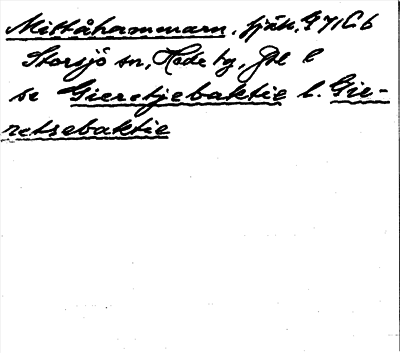 Mittåhammarn, fjäll. G 71 C b
Storsjö sn, Hede tg, Jtl l
se Gieretjebaktie l. Gie-
retsebaktie